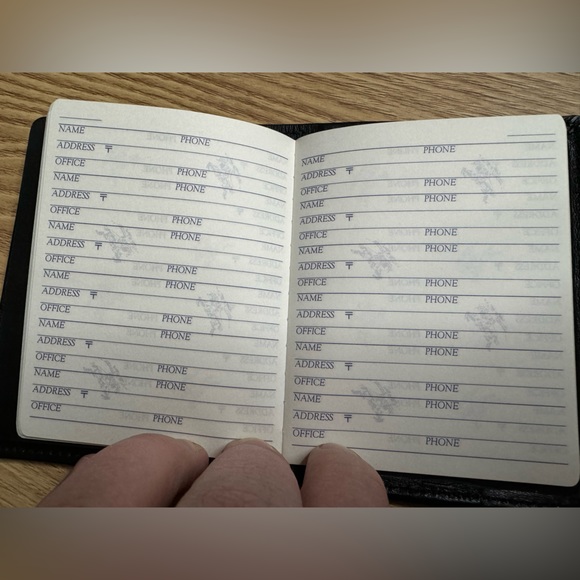 NAME PHONE
ADDRESS 〒
OFFICE PHONE
NAME PHONE
ADDRESS 〒
OFFICE PHONE
NAME PHONE
ADDRESS 〒
OFFICE PHONE
NAME PHONE
ADDRESS 〒
OFFICE PHONE
NAME PHONE
ADDRESS 〒
OFFICE PHONE
NAME PHONE
ADDRESS 〒
OFFICE PHONE
NAME PHONE
ADDRESS 〒
OFFICE PHONE
NAME PHONE
ADDRESS 〒
OFFICE PHONE
NAME PHONE
ADDRESS 〒
OFFICE PHONE
NAME PHONE
ADDRESS 〒
OFFICE PHONE
NAME PHONE
ADDRESS 〒
OFFICE PHONE
NAME PHONE
ADDRESS 〒
OFFICE PHONE